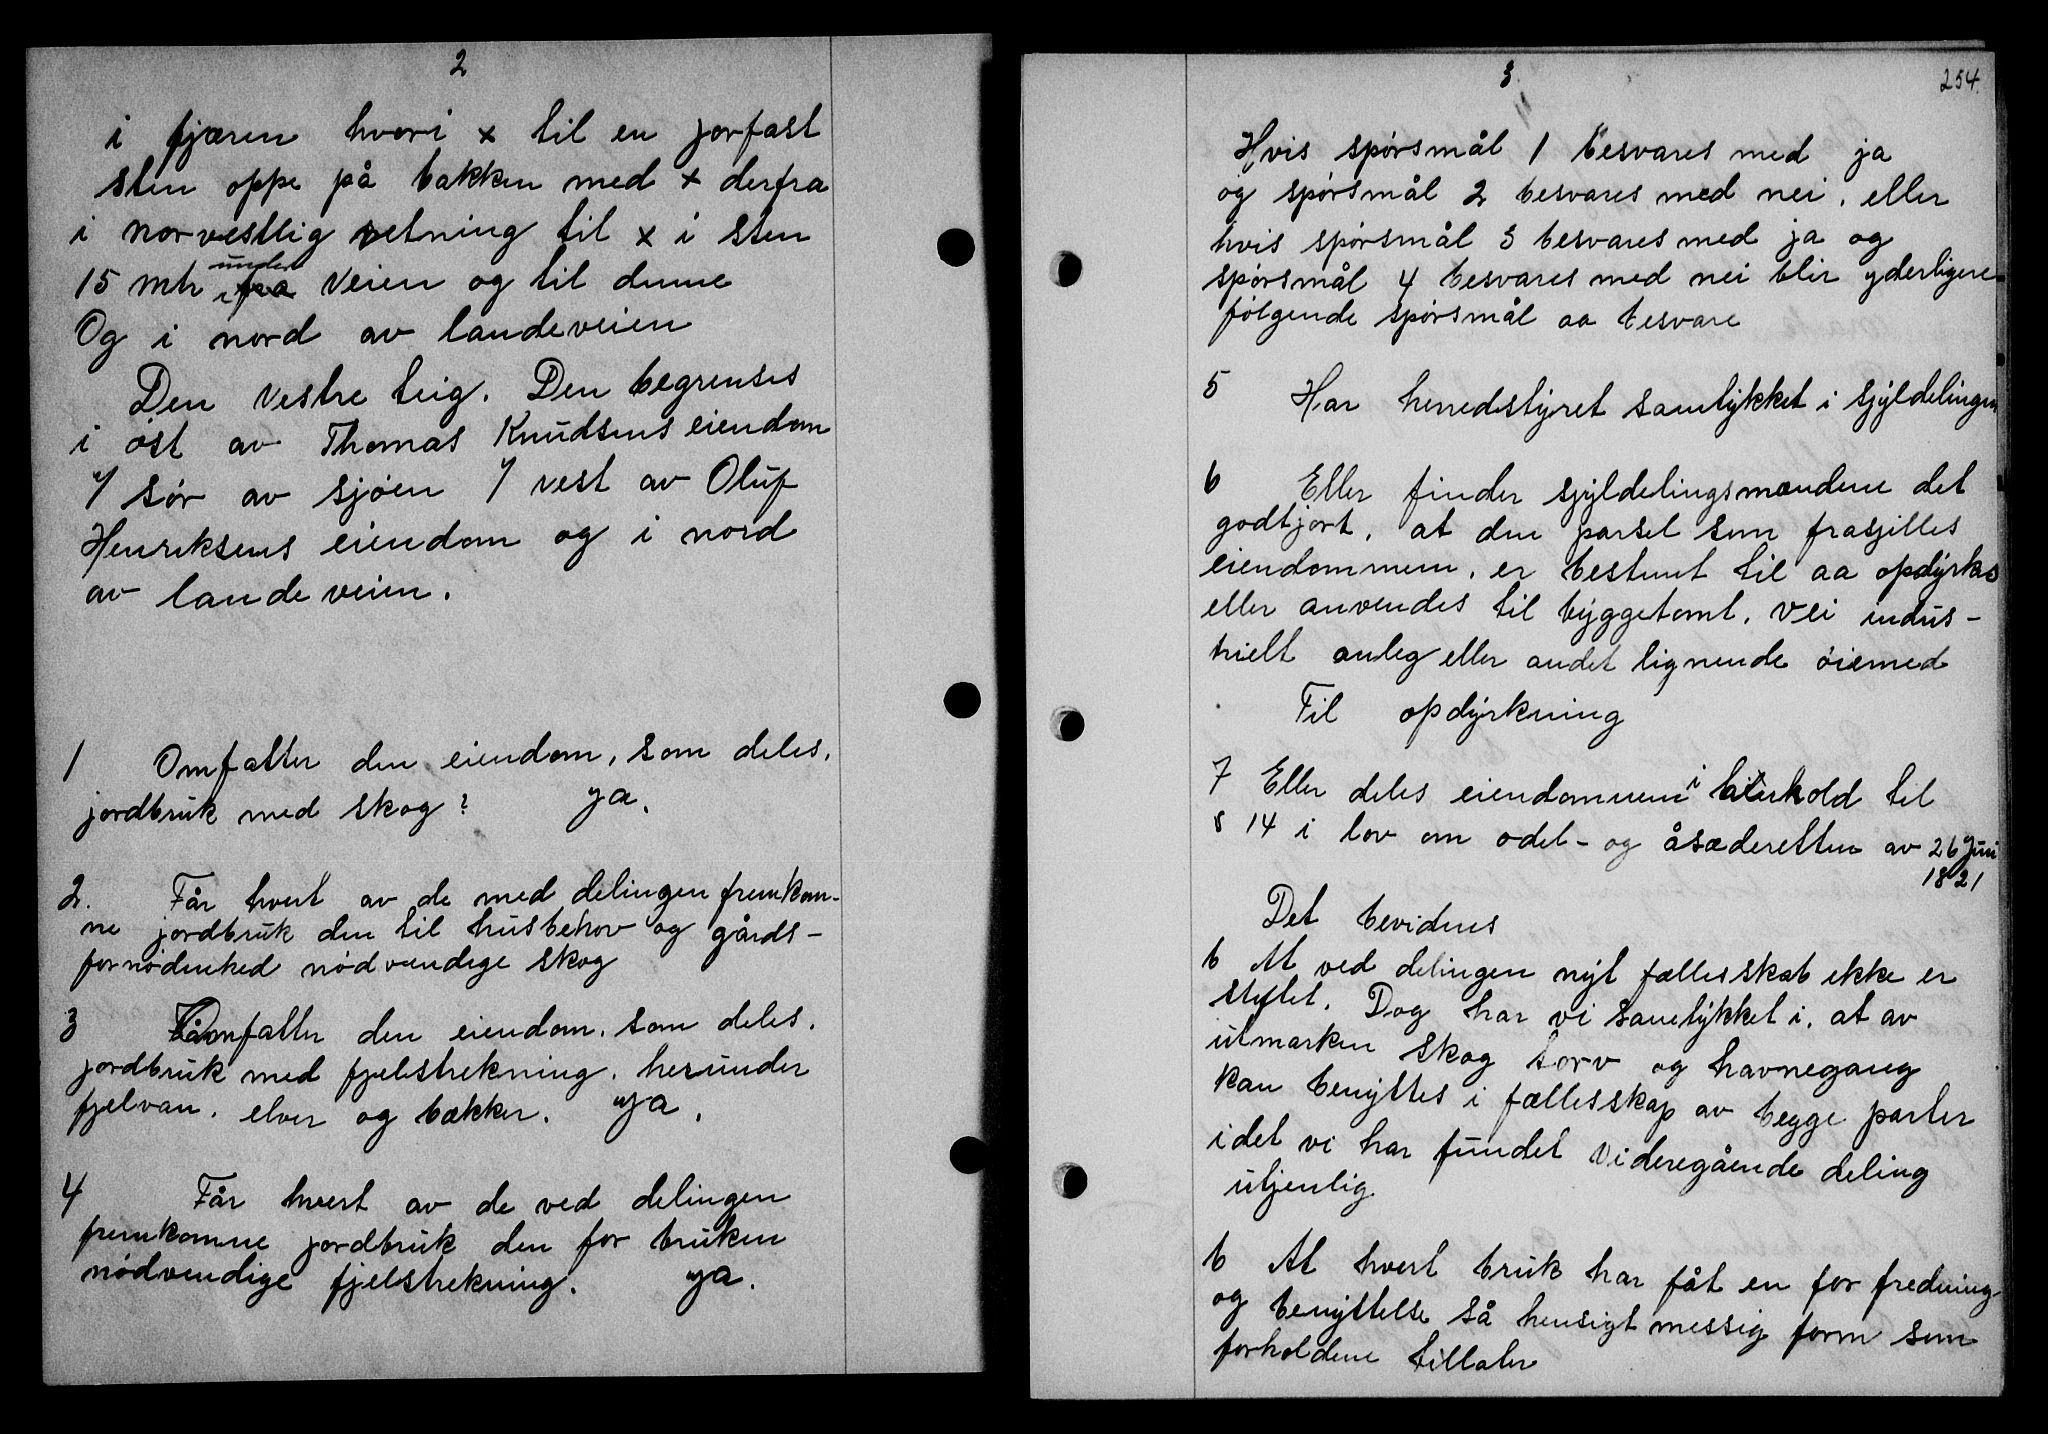 2
i fjæren hvori x til en jorfast
sten oppe på bakken med x derfra
i norvestlig retning til x i sten
15 mtr under veien og til denne
Og i nord av landeveien
Den vestre teig. Den begrenses
i øst av Thomas Knudsens eiendom
I sør av sjøen I vest av Oluf
Henriksens eiendom og i nord
av landeveien.
1 Omfatter den eiendom, som deles,
jordbruk med skog? ya.
2. Får hvert av de med delingen fremkom-
ne jordbruk den til husbehov og gårds-
fornødenhed nødvendige skog
3 Omfatter den eiendom, som deles,
jordbruk med fjelstrekning, herunder
fjelvan, elver og bækker. ya.
4 Får hvert av de ved delingen
fremkomne jordbruk den for bruken
nødvendige fjelstrekning. ya.
3.
254.
Hvis spørsmål 1 besvares med ja
og spørsmål 2 besvares med nei, eller
hvis spørsmål 3 besvares med ja og
spørsmål 4 besvares med nei blir yderligere
følgende spørsmål aa besvare
5 Har herredstyret samtykket i sjyldelingen
6 Eller finder sjyldelingsmændene det
godtjort, at den parsel som frasjilles
eiendommen, er bestemt til aa opdyrkes
eller anvendes til byggetomt, vei indus-
trielt anleg eller andet lignende øiemed
Til opdyrkning
7 Eller deles eiendommen i henhold til
§ 14 i lov om odel- og åsæderetten av 26 Juni
1821
Det bevidnes
b At ved delingen nyt fællesskab ikke er
stiftet. Dog har vi samtykket i, at av
utmarken skog torv og havnegang
kan benyttes i fællesskap av begge parter
idet vi har fundet videregående deling
utjenlig
b At hvert bruk har fåt en for fredning
og benyttelse så hensigtmessig form som
forholdene tillater